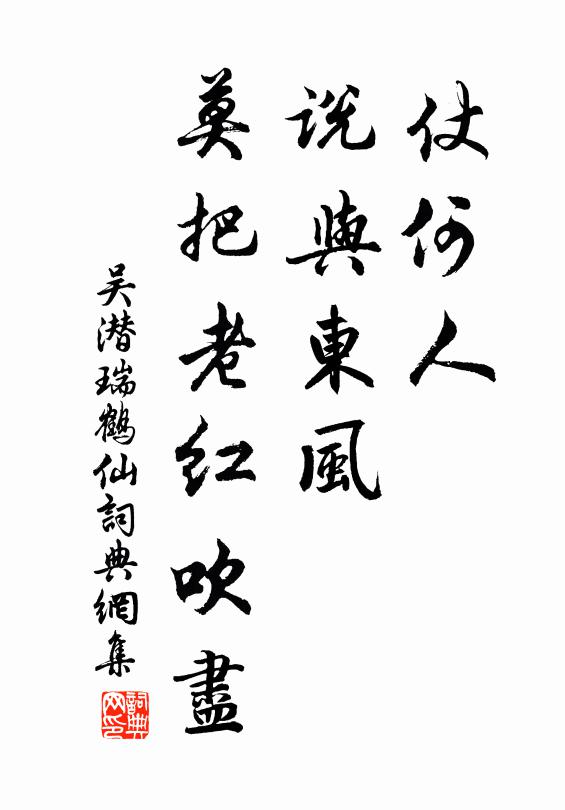 仗何人
說與東風
莫把老红吹盡
吴潜瑞鶴仙詞典網集
詞典网印